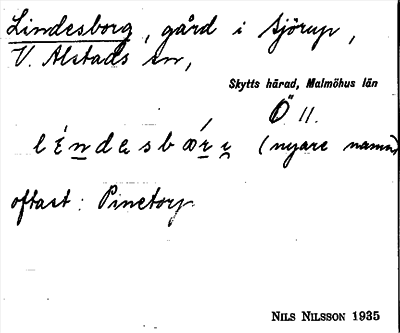 Lindesborg, gård i Sjörup,
V. Alstads sn,
Skytts härad, Malmöhus län
Ö 11.
léndesbǽrɪ̯ (nyare namn)
oftast: Pinetorp
NILS NILSSON 1935